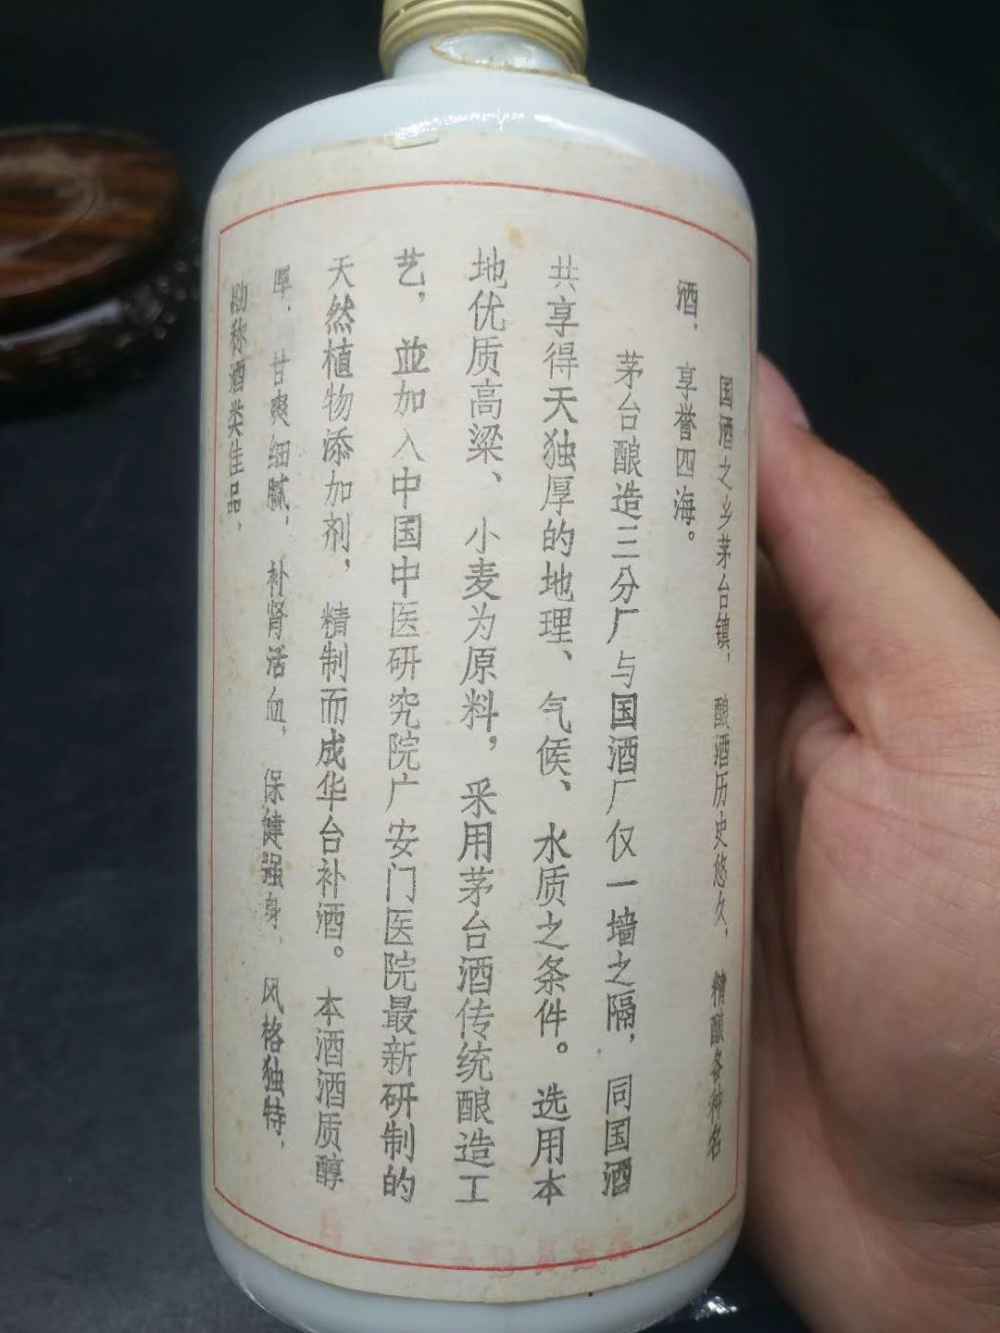 国酒之乡茅台镇，酿酒历史悠久，精酿各种名
酒，享誉四海。
茅台酿造三分厂与国酒厂仅一墙之隔，同国酒
共享得天独厚的地理、气候、水质之条件。选用本
地优质高梁、小麦为原料，采用茅台酒传统酿造工
艺，並加入中国中医研究院广安门医院最新研制的
天然植物添加剂，精制而成华台补酒。本酒酒质醇
厚，甘爽细腻，补肾活血，保健强身，风格独特，
勘称酒类佳品，